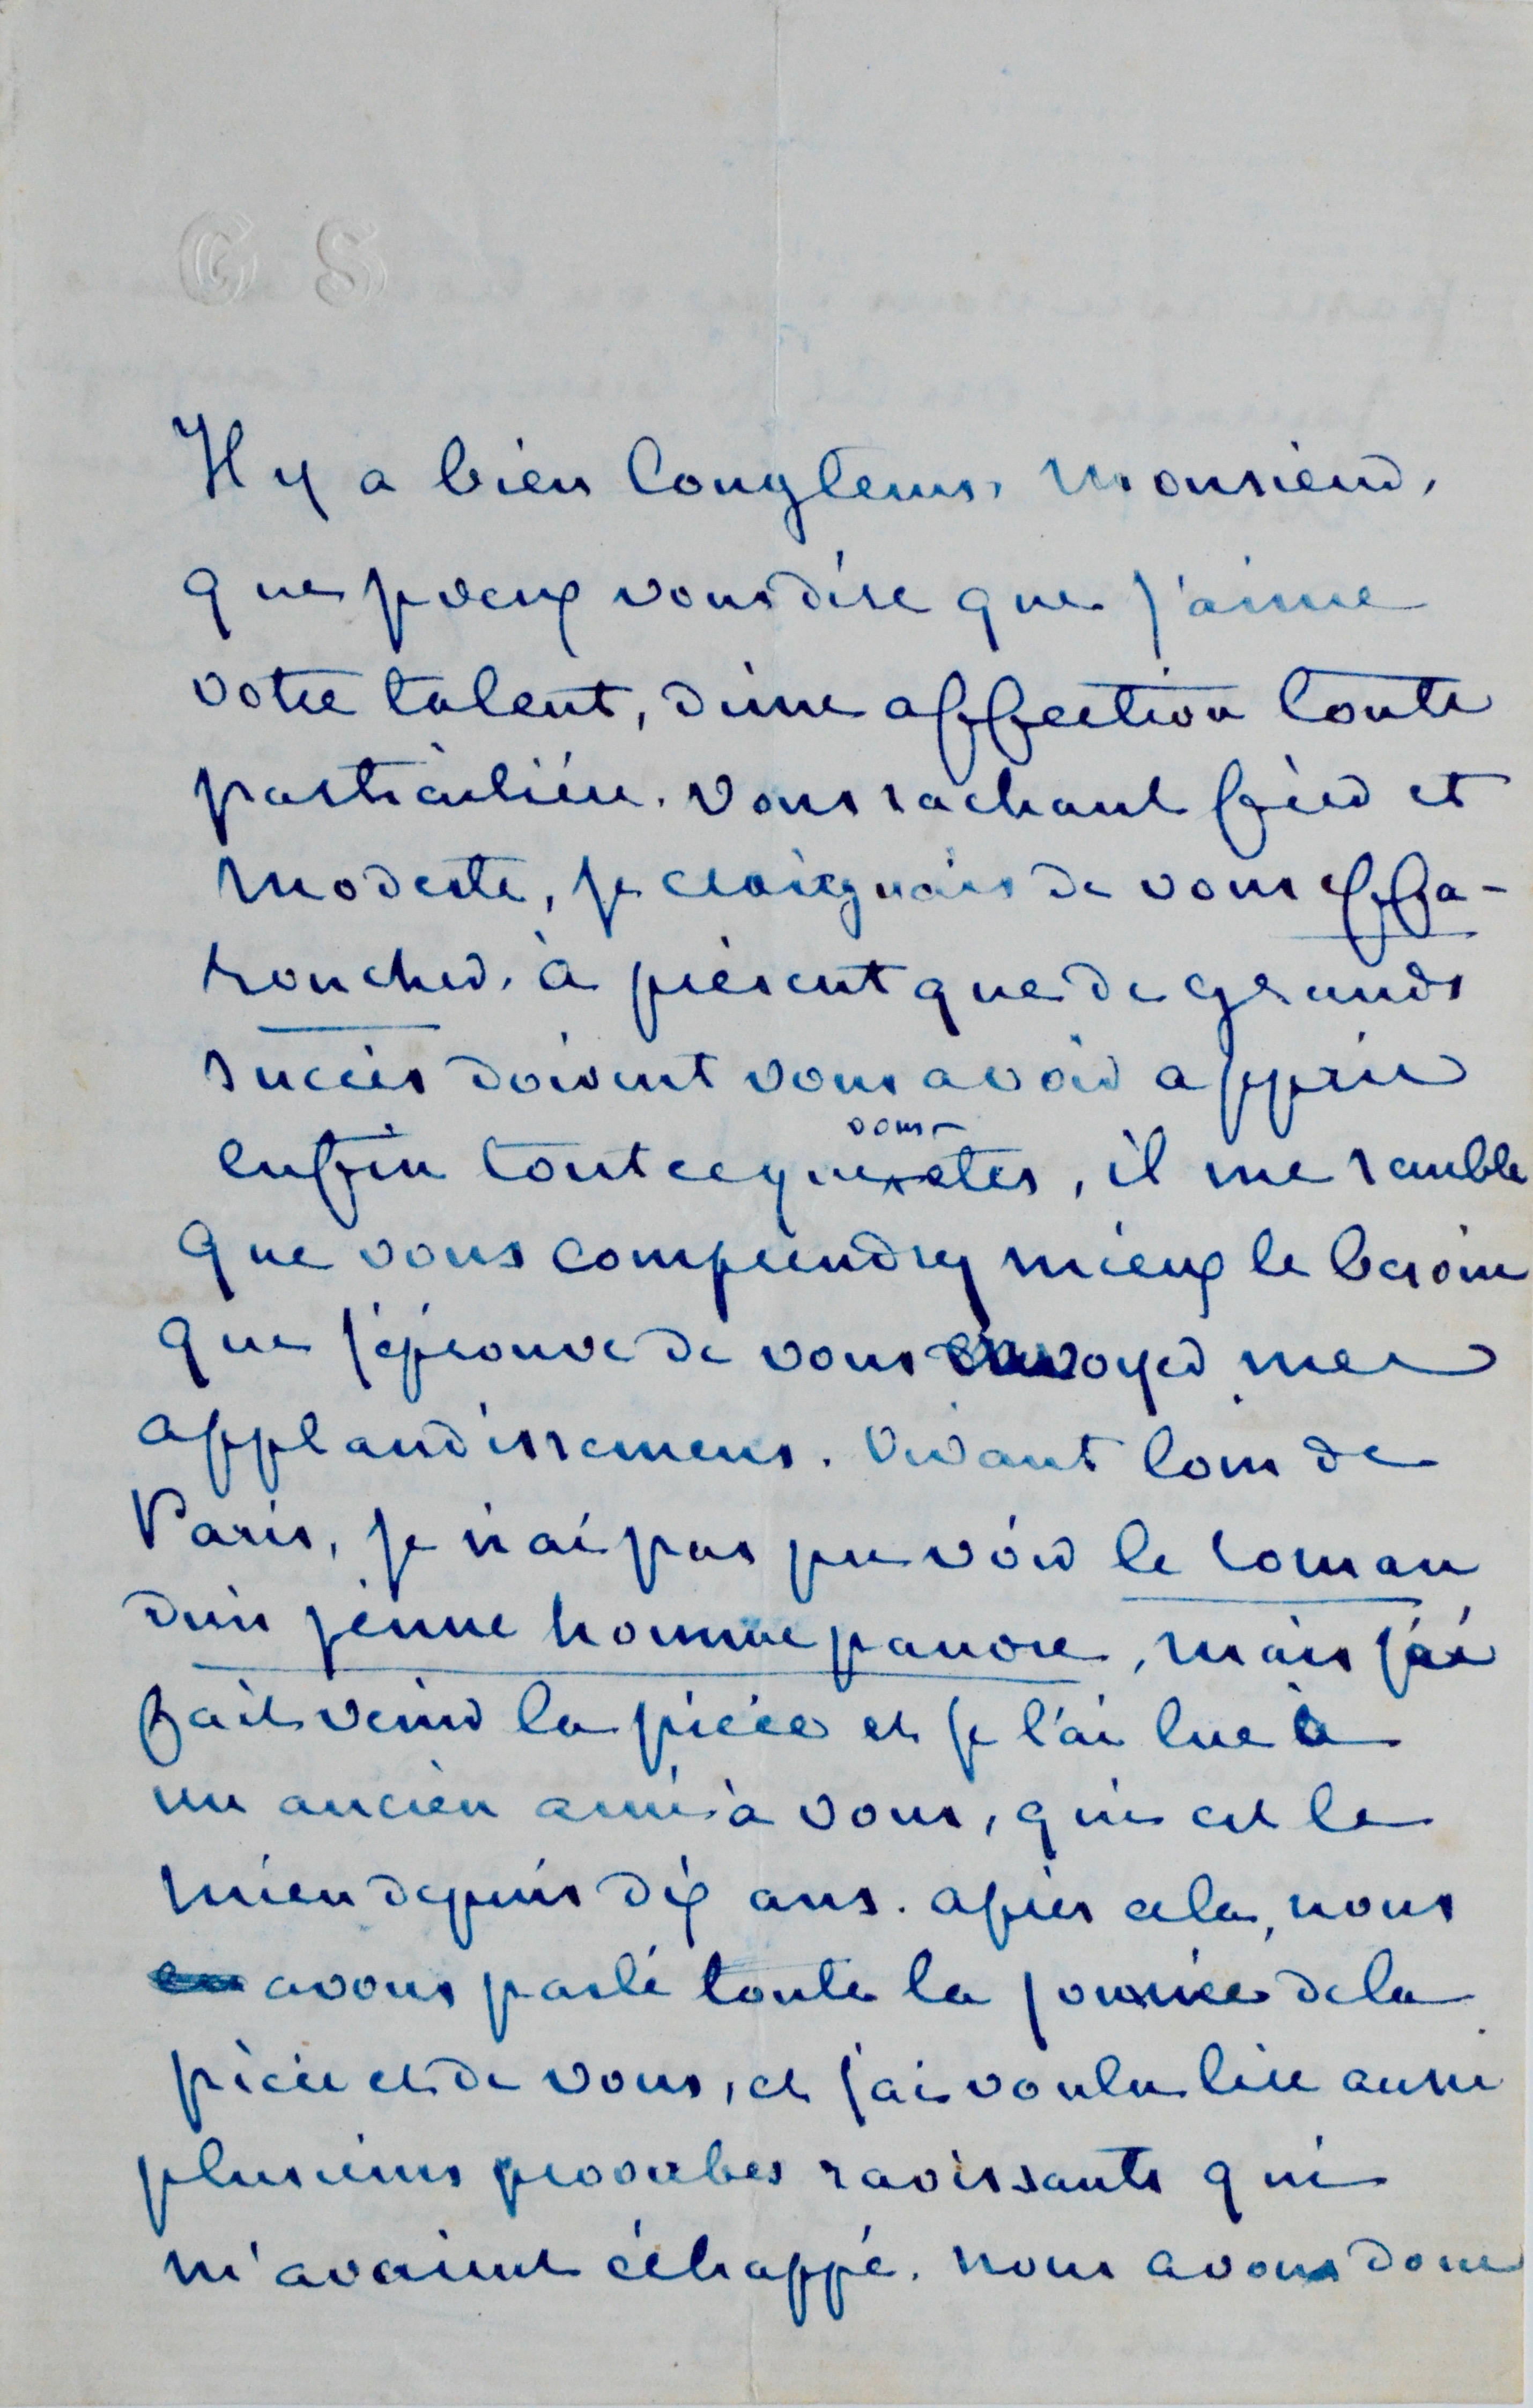 G S
Il y a bien longtems, Monsieur,
que je veux vous dire que j'aime
votre talent, d'une affection toute
particulière. Vous sachant fier et
modeste, je craignais de vous effa-
roucher. à présent que de grands
succès doivent vous avoir appris
enfin tout ce que vous etes, il me semble
que vous comprendrez mieux le besoin
que j'éprouve de vous envoyer mes
applaudissemens. Vivant loin de
Paris, je n'ai pas pu voir le roman
d'un jeune homme pauvre, mais j'ai
fait venir la pièce et je l'ai lue à
un ancien ami à vous, qui est le
mien depuis dix ans. après cela, nous
avons parlé toute la journée de la
pièce et de vous, et j'ai voulu lire aussi
plusieurs proverbes ravissants qui
m'avaient échappé. nous avons donc